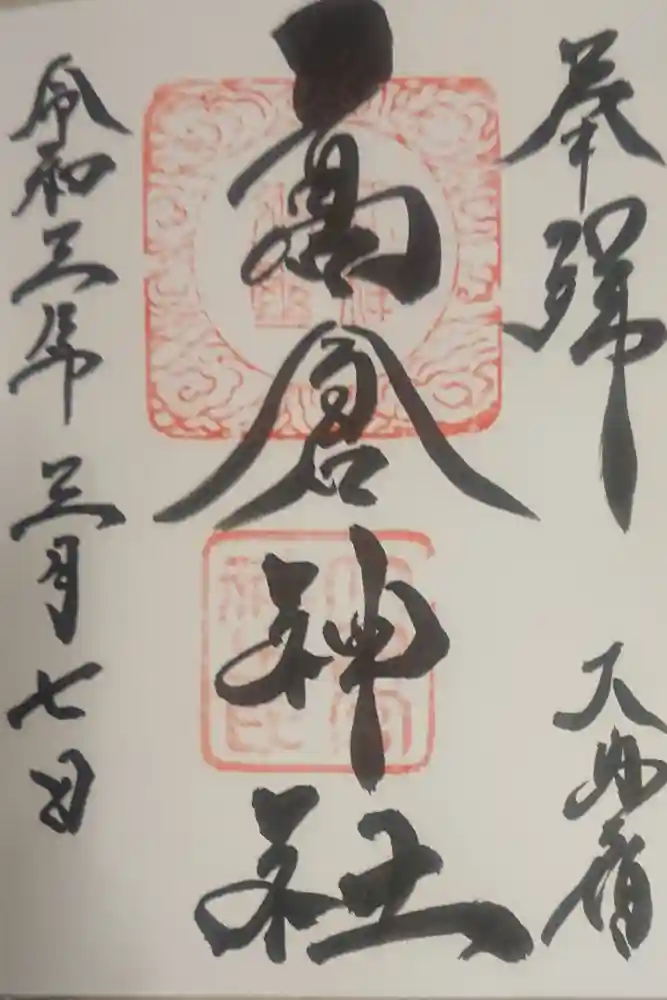 奉拝
高倉神社
令和三年三月七日